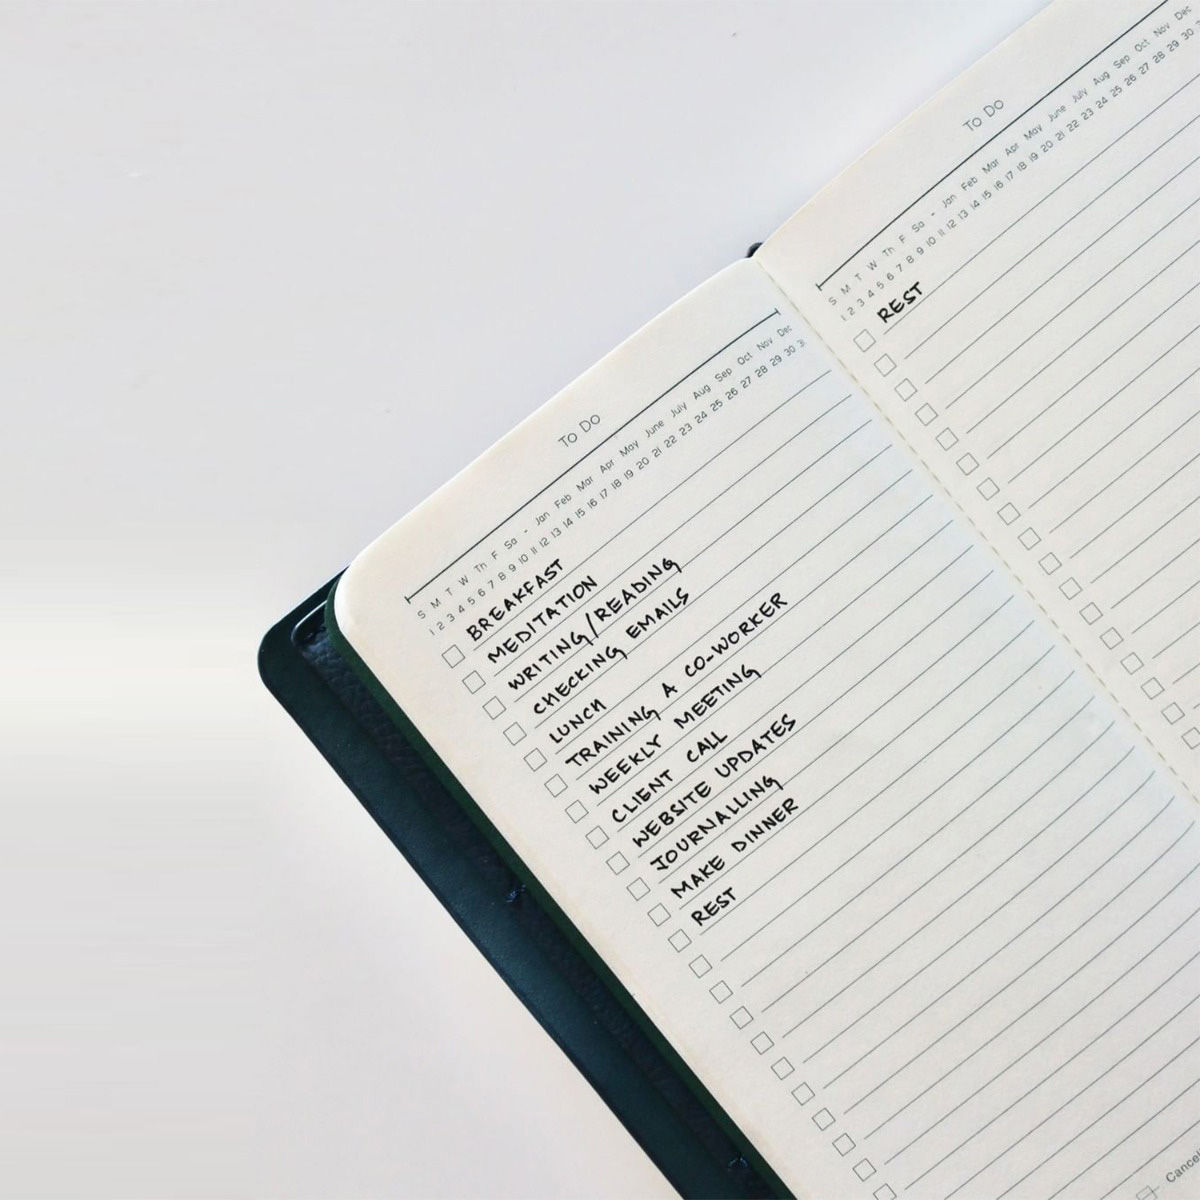 To Do
S M T W Th F Sa - Jan Feb Mar Apr May June July Aug Sep Oct Nov Dec
1 2 3 4 5 6 7 8 9 10 11 12 13 14 15 16 17 18 19 20 21 22 23 24 25 26 27 28 29 30 31
BREAKFAST
MEDITATION
WRITING/READING
CHECKING EMAILS
LUNCH
TRAINING A CO-WORKER
WEEKLY MEETING
CLIENT CALL
WEBSITE UPDATES
JOURNALLING
MAKE DINNER
REST
To Do
S M T W Th F Sa - Jan Feb Mar Apr May June July Aug Sep Oct Nov Dec
1 2 3 4 5 6 7 8 9 10 11 12 13 14 15 16 17 18 19 20 21 22 23 24 25 26 27 28 29 30
REST